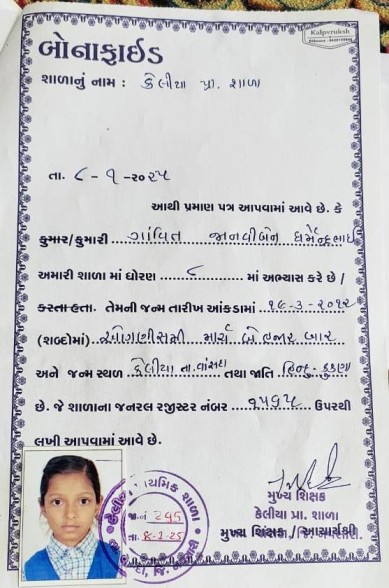 Kalpvruksh
બોનાફાઈડ
શાળાનું નામ : કેલીયા પ્રા. શાળા
તા. ૮ - ૧ -૨૦૨૫
આથી પ્રમાણ પત્ર આપવામાં આવે છે. કે
કુમાર/કુમારી ગાંવિત જાનવીબેન ધર્મેન્દ્રભાઈ
અમારી શાળા માં ધોરણ ૮ માં અભ્યાસ કરે છે /
કરતા હતા. તેમની જન્મ તારીખ આંકડામાં ૧૯-૩-૨૦૧૨
(શબ્દોમાં) ઓગણીસમી માર્ચ બે હજાર બાર
અને જન્મ સ્થળ કેલીયા તા. વાંસદા તથા જાતિ હિન્દુ - કુકણા
છે. જે શાળાના જનરલ રજીસ્ટર નંબર ૧૫૬૫ ઉપરથી
લખી આપવામાં આવે છે.
મુખ્ય શિક્ષક
કેલીયા પ્રા. શાળા
મુખ્ય શિક્ષક / આચાર્યશ્રી
જા.નં 295
તા. 8-1-25